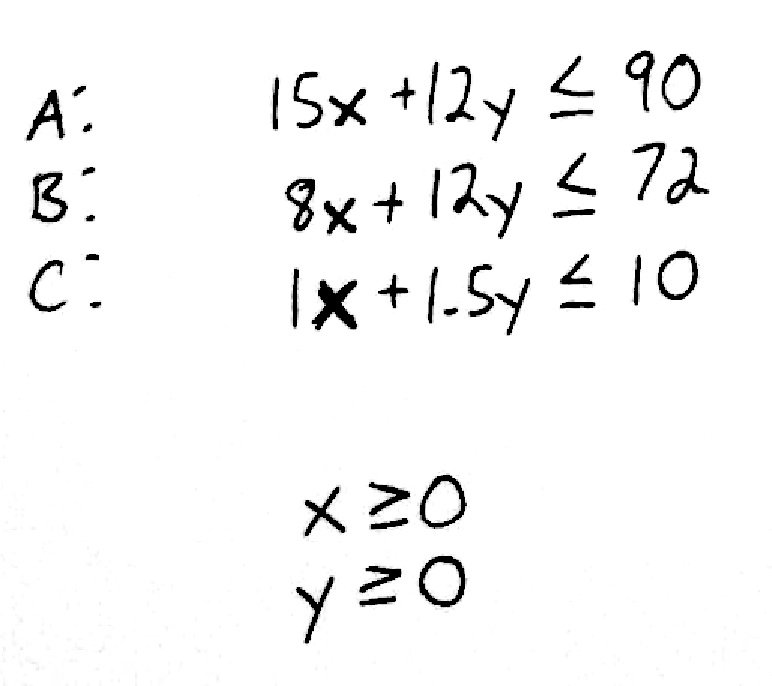 A: 15x + 12y ≤ 90
B: 8x + 12y ≤ 72
C: 1x + 1.5y ≤ 10
x ≥ 0
y ≥ 0